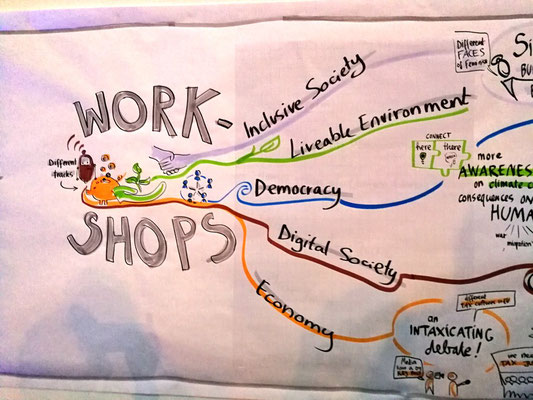 WORK-
SHOPS
Different
Inclusive Society
Liveable Environment
Democracy
Digital Society
Economy
Different
FACES
of Feminism
CONNECT
here
there
more
AWARENESS
on climate
consequences on
HUMA
war
migration
different
TAX cultures
an
INTAXICATING
debate!
Media
TAX